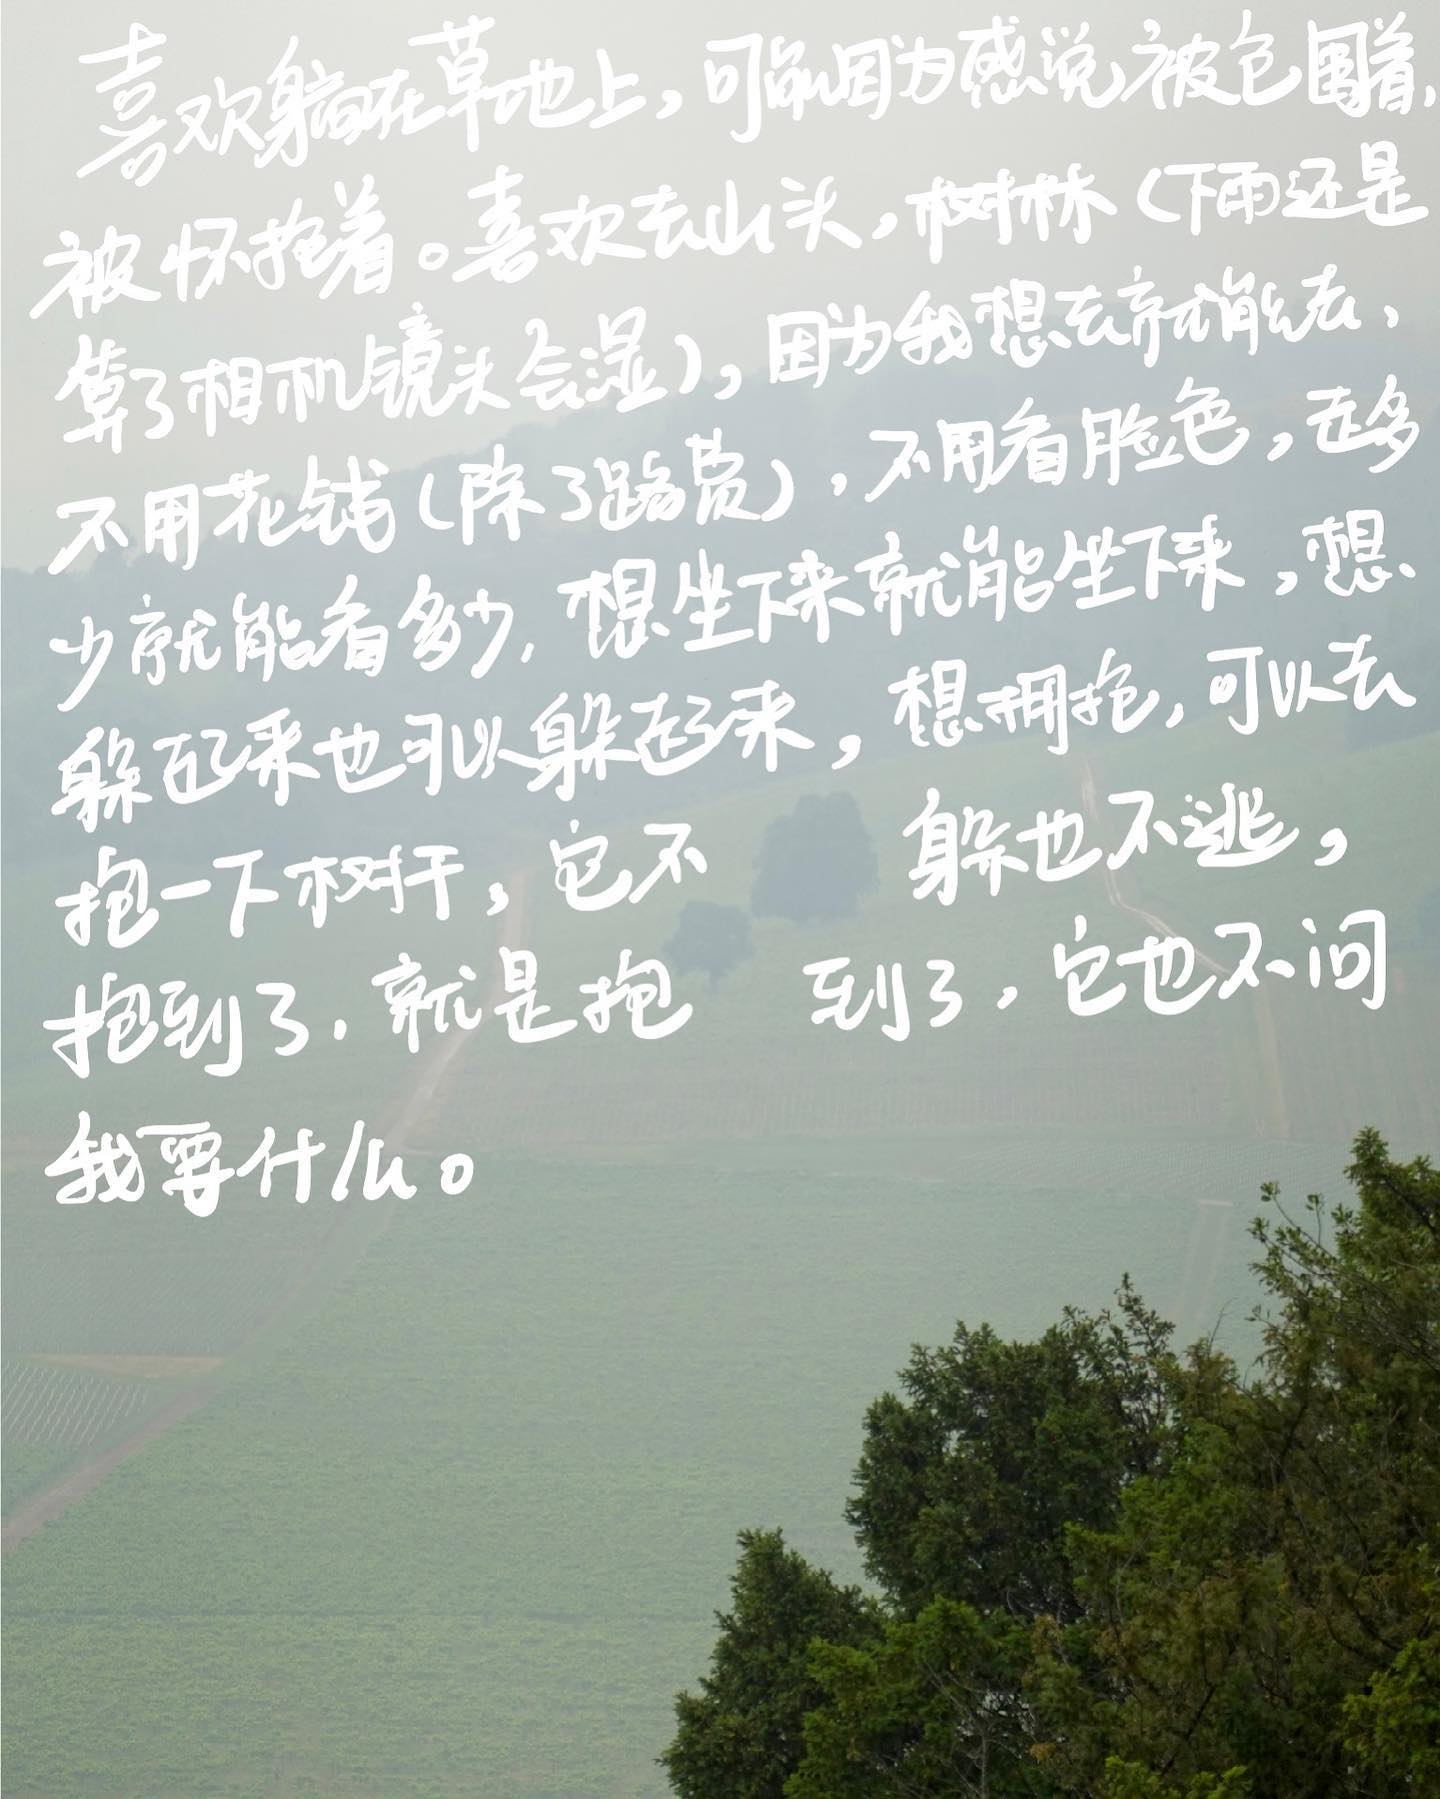 喜欢躺在草地上，可能因为感觉被包围着，
被怀抱着。喜欢去山头，树林（下雨还是
算了相机镜头会湿），因为我想去就能去，
不用花钱（除了路费），不用看脸色，走多
少就能看多少，想坐下来就能坐下来，想
躲起来也可以躲起来，想拥抱，可以去
抱一下树干，它不躲也不逃，
抱到了，就是抱到了，它也不问
我要什么。